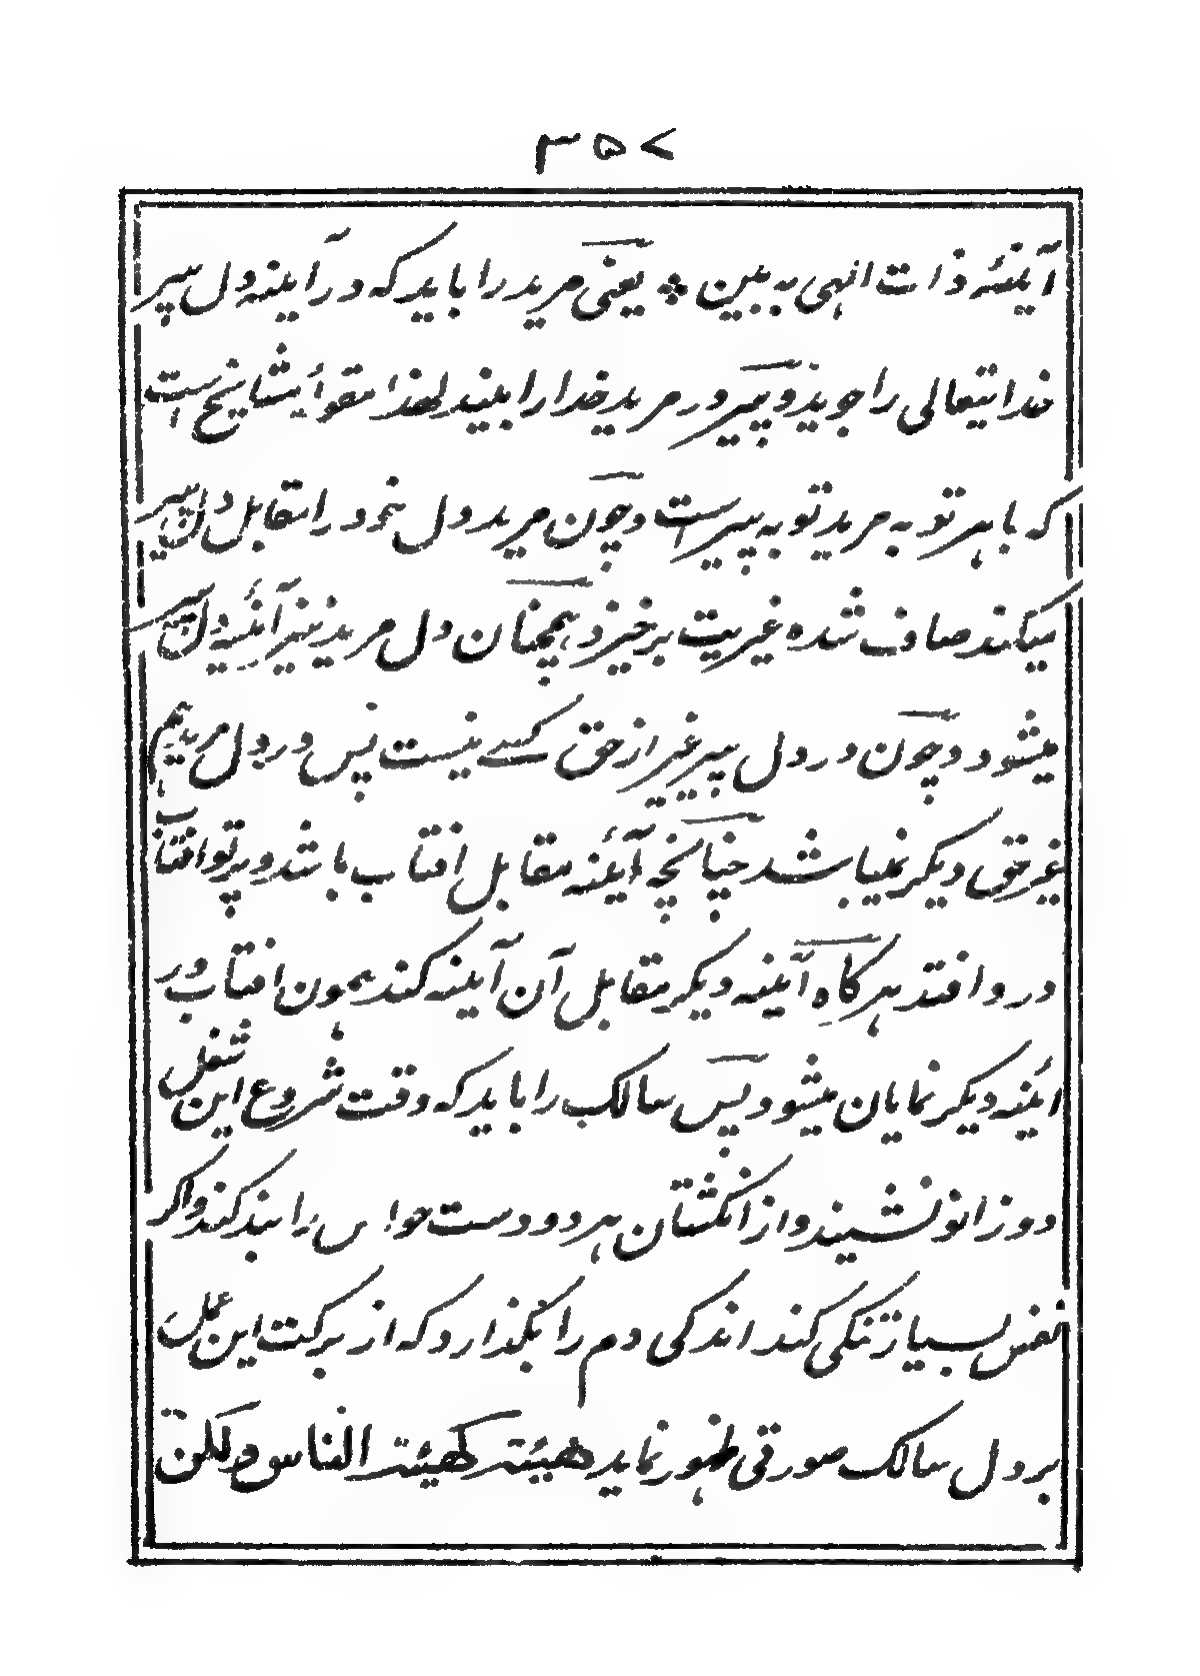 ۳۵۷
آینهٔ ذات الهی به بین ؞ یعنی مرید را باید که در آینه دل پیر
خدایتعالی را جوید و پیر در مرید خدا را بیند لهذا مقوله مشایخ است
که با هر توبه مرید توبه پیر است و چون مرید دل خود را مقابل دل پیر
میکند صاف شده غیریت برخیزد همچنان دل مرید نیز آئینه دل پیر
میشود و چون در دل پیر غیر از حق کسے نیست پس در دل مرید هم
غیر حق دیگر نمیباشد چنانچه آئینه مقابل افتاب باشد و پرتو افتاب
درو افتد هر گاه آئینه دیگر مقابل آن آینه کند همون افتاب در
ائینه دیگر نمایان میشود پس سالک را باید که وقت شروع این شغل
دوزانو نشیند و از انگشتان هر دو دست حواس را بند کند و اگر
نفس بسیار تنگی کند اندکی دم را بگذارد که از برکت این عمل
بر دل سالک صورتی ظهور نماید هیئته کهیئته الناس ولکن